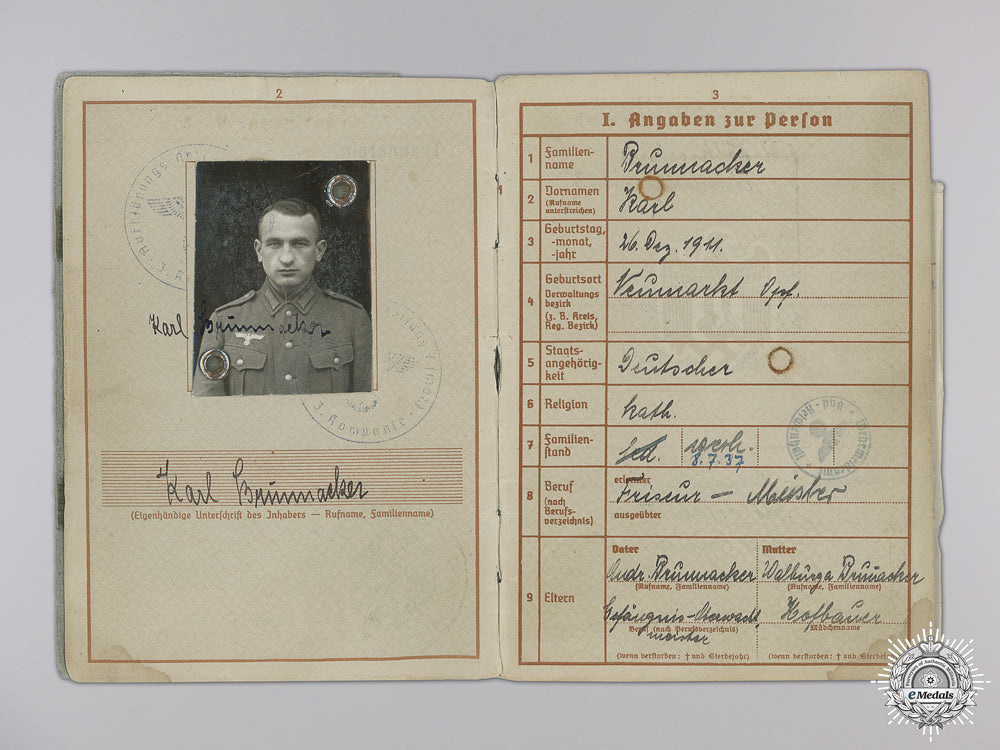 2
Karl Brunnacker
Karl Brunnacker
(Eigenhändige Unterschrift des Inhabers — Rufname, Familienname)
3. Kompanie
3
I. Angaben zur Person
1 Familien-
name
Brunnacker
2 Vornamen
(Rufname
unterstreichen)
Karl
3 Geburtstag,
-monat,
-jahr
26. Dez. 1911.
4 Geburtsort
Verwaltungs
bezirk
(z. B. Kreis,
Reg. Bezirk)
Neumarkt Opf.
5 Staats-
angehörig-
keit
Deutscher
6 Religion
kath.
7 Familien-
stand
led. verh.
8.7.37
8 Beruf
(nach
Berufs-
verzeichnis)
erlernter
Friseur – Meister
ausgeübter
9 Eltern
Vater
Andr. Brunnacker
(Rufname, Familienname)
Gefängnis-Oberwacht
meister
Beruf (nach Berufsverzeichnis)
(wenn verstorben: † und Sterbejahr)
Mutter
Walburga Brunnacker
(Rufname, Familienname)
Hofbauer
Mädchenname
(wenn verstorben: † und Sterbejahr)
eMedals